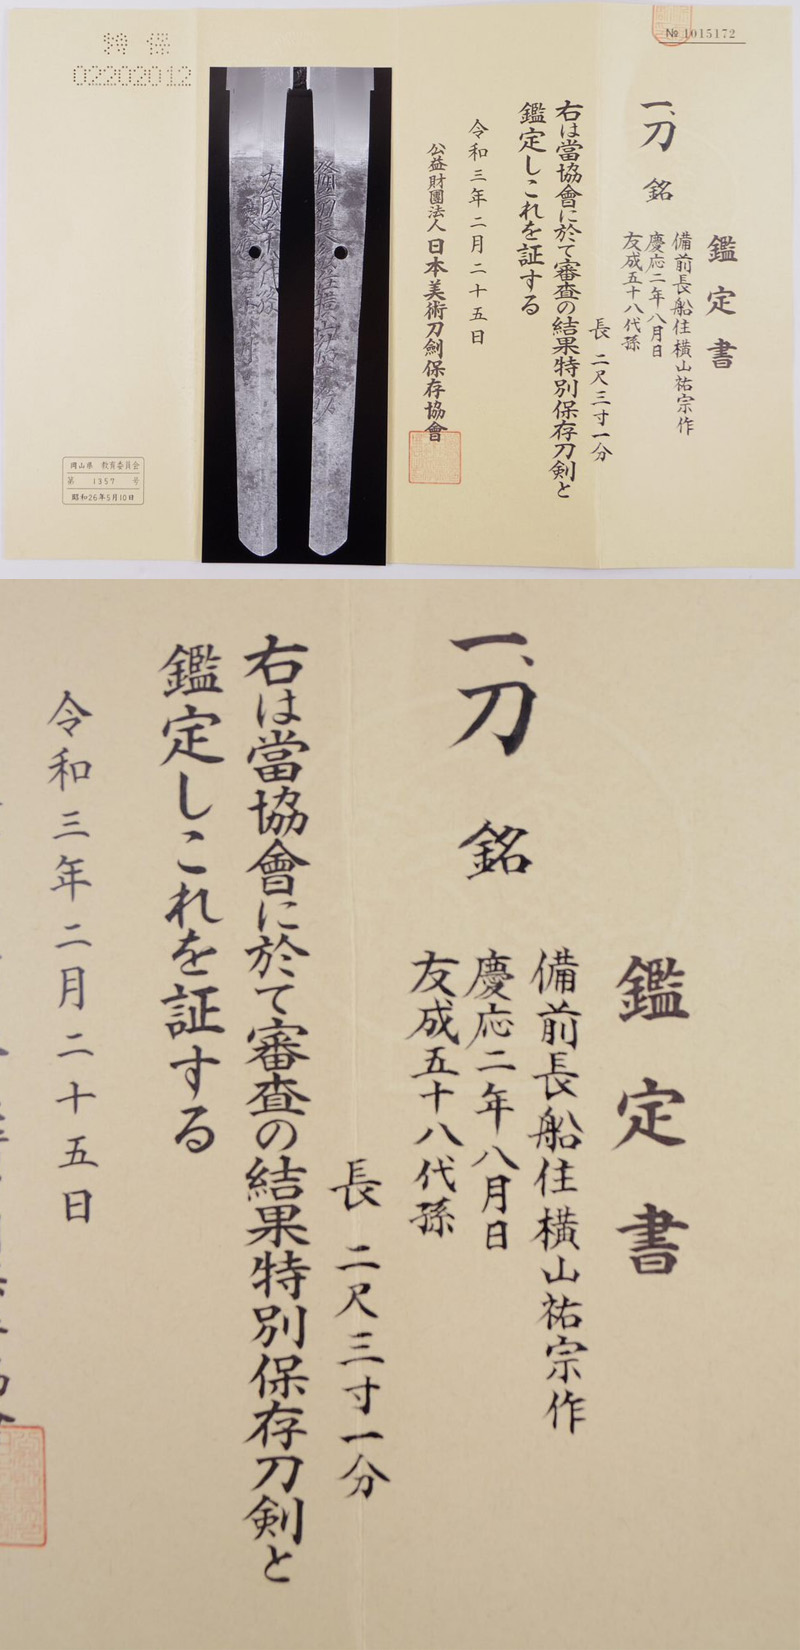 鑑定書
一、刀 銘
備前長船住横山祐宗作
慶応二年八月日
友成五十八代孫
長 二尺三寸一分
右は當協會に於て審査の結果特別保存刀剣と
鑑定しこれを証する
令和三年二月二十五日
公益財團法人 日本美術刀劍保存協會
№ 1015172
特 保
02202012
岡山県 教育委員会
第 1357 号
昭和26年5月10日
鑑定書
一、刀 銘
備前長船住横山祐宗作
慶応二年八月日
友成五十八代孫
長 二尺三寸一分
右は當協會に於て審査の結果特別保存刀剣と
鑑定しこれを証する
令和三年二月二十五日